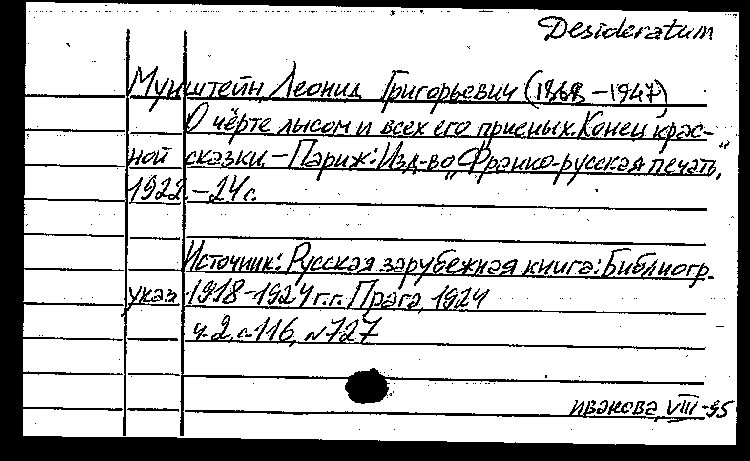 Desideratum
Мунштейн, Леонид Григорьевич (1868 – 1947)
О чёрте лысом и всех его присных. Конец крас-
ной сказки – Париж: Изд-во „Франко-русская печать",
1922. – 24 с.
Источник: Русская зарубежная книга: Библиогр.
указ. 1918-1924 г.г. Прага, 1924
ч. 2, с. 116, N 727
иванова, VIII-95